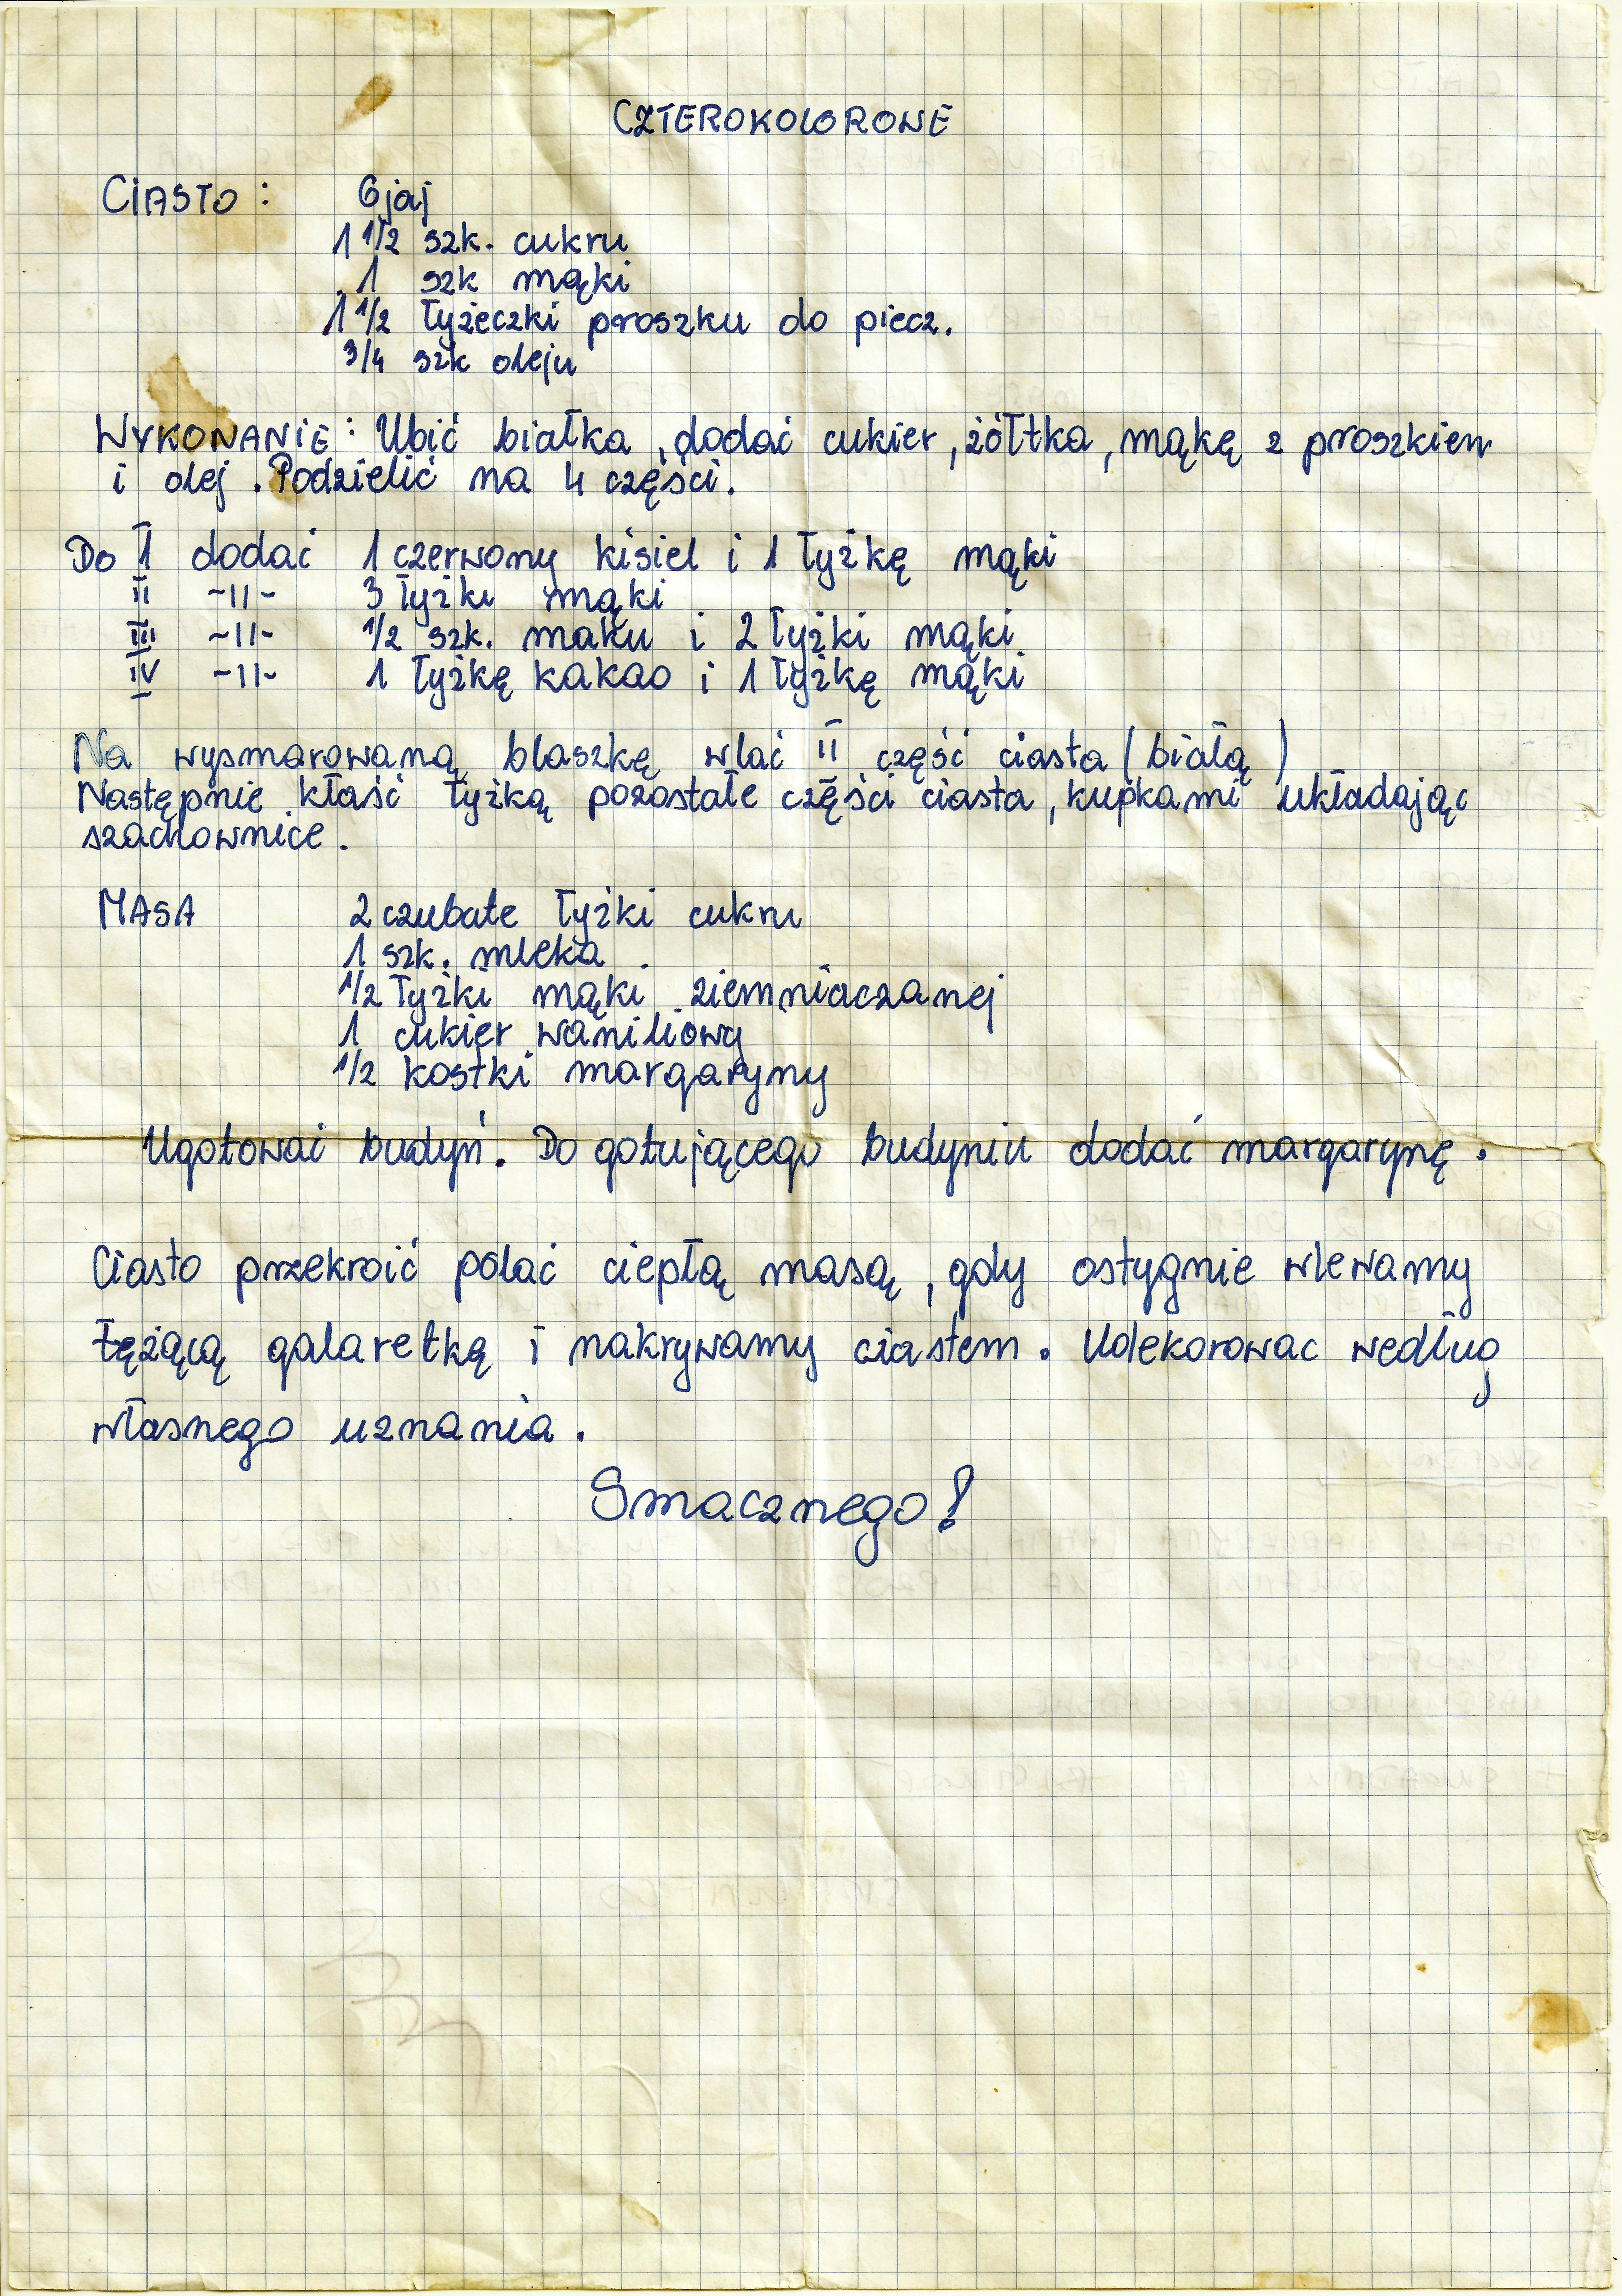 CZTEROKOLOROWE
CIASTO : 6 jaj
1 1/2 szk. cukru
1 szk mąki
1 1/2 łyżeczki proszku do piecz.
3/4 szk oleju
WYKONANIE : Ubić białka, dodać cukier, żółtka, mąkę z proszkiem
i olej. Podzielić na 4 części.
Do I dodać 1 czerwony kisiel i 1 łyżkę mąki
II ~II~ 3 łyżki mąki
III ~II~ 1/2 szk. maku i 2 łyżki mąki
IV ~II~ 1 łyżkę kakao i 1 łyżkę mąki
Na wysmarowaną blaszkę wlać II część ciasta (białą)
Następnie kłaść łyżką pozostałe części ciasta, kupkami układając
szachownice.
MASA 2 czubate łyżki cukru
1 szk. mleka
1/2 łyżki mąki ziemniaczanej
1 cukier waniliowy
1/2 kostki margaryny
Ugotować budyń. Do gotującego budyniu dodać margarynę.
Ciasto przekroić polać ciepłą masą, gdy ostygnie wlewamy
tężącą galaretkę i nakrywamy ciastem. Udekorowac według
własnego uznania.
Smacznego!